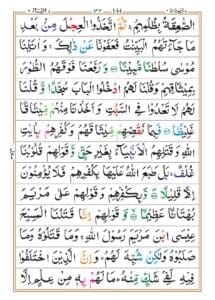 الصّٰعِقَةُ بِظُلْمِهِمْ ۚ ثُمَّ اتَّخَذُوا الْعِجْلَ مِنْۢ بَعْدِ
مَا جَآءَتْهُمُ الْبَيِّنٰتُ فَعَفَوْنَا عَنْ ذٰلِكَ ۚ وَاٰتَيْنَا
مُوْسٰى سُلْطٰنًا مُّبِيْنًا ۝ وَرَفَعْنَا فَوْقَهُمُ الطُّوْرَ
بِمِيْثَاقِهِمْ وَقُلْنَا لَهُمُ ادْخُلُوا الْبَابَ سُجَّدًا وَّقُلْنَا
لَهُمْ لَا تَعْدُوْا فِى السَّبْتِ وَاَخَذْنَا مِنْهُمْ مِّيْثَاقًا
غَلِيْظًا ۝ فَبِمَا نَقْضِهِمْ مِّيْثَاقَهُمْ وَكُفْرِهِمْ بِاٰيٰتِ
اللّٰهِ وَقَتْلِهِمُ الْاَنْۢبِيَآءَ بِغَيْرِ حَقٍّ وَّقَوْلِهِمْ قُلُوْبُنَا
غُلْفٌ ؕ بَلْ طَبَعَ اللّٰهُ عَلَيْهَا بِكُفْرِهِمْ فَلَا يُؤْمِنُوْنَ
اِلَّا قَلِيْلًا ۝ وَّبِكُفْرِهِمْ وَقَوْلِهِمْ عَلٰى مَرْيَمَ
بُهْتَانًا عَظِيْمًا ۝ وَّقَوْلِهِمْ اِنَّا قَتَلْنَا الْمَسِيْحَ
عِيْسَى ابْنَ مَرْيَمَ رَسُوْلَ اللّٰهِ ۚ وَمَا قَتَلُوْهُ وَمَا
صَلَبُوْهُ وَلٰكِنْ شُبِّهَ لَهُمْ ؕ وَاِنَّ الَّذِيْنَ اخْتَلَفُوْا
فِيْهِ لَفِىْ شَكٍّ مِّنْهُ ؕ مَا لَهُمْ بِهٖ مِنْ عِلْمٍ اِلَّا